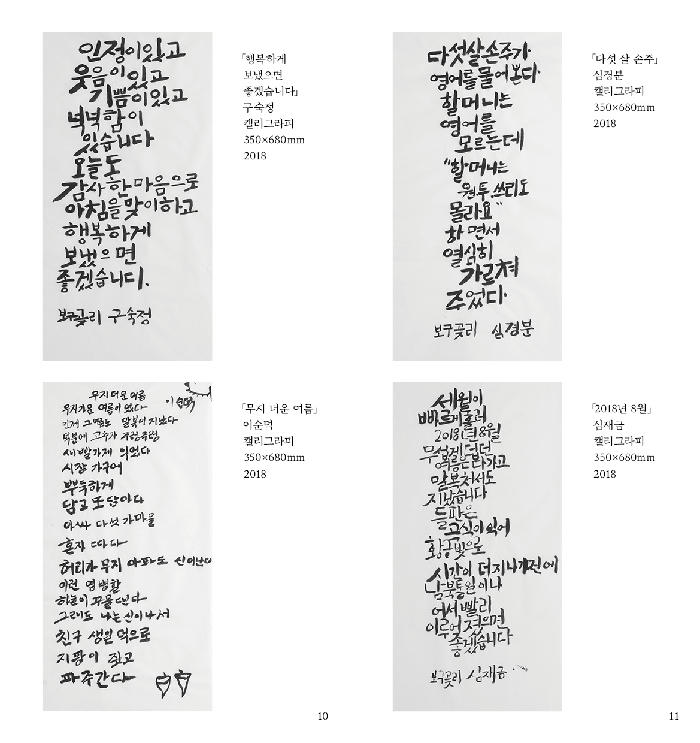 인정이있고
웃음이있고
기쁨이있고
넉넉함이
있습니다
오늘도
감사한마음으로
아침을맞이하고
행복하게
보냈으면
좋겠습니다.
보구곶리 구숙정
「행복하게
보냈으면
좋겠습니다」
구숙정
캘리그라피
350×680mm
2018
다섯살손주가
영어를물어본다.
할머니는
영어를
모르는데
"할머니는
원투.쓰리도
몰라요"
하면서
열심히
가르쳐
주었다.
보구곶리 심경분
「다섯 살 손주」
심경분
캘리그라피
350×680mm
2018
무지더운여름
이순덕
무지개운 여름이 왔다
새빨가게 익었다
시장 가구어
뿌듯하게
담고 또담아다
아싸 다섯가마을
혼자 따다
허리가 무지 아파도 신이난다
이런 염병할
하늘이 꾸물댄다
그래도 나는신이나서
친구 생일 먹으로
지팡이 쥐고
파주간다
「무지 더운 여름」
이순덕
캘리그라피
350×680mm
2018
세월이
빠르게흘러
2018년8월
무섭게덥던
여름은다가고
말복처서도
지났습니다
들판은
곡식이익어
황금빛으로
시간이 더지나가전에
남북통일이나
어서빨리
이루어졌으면
좋겠습니다
보구곶리 심재금
「2018년 8월」
심재금
캘리그라피
350×680mm
2018
10
11